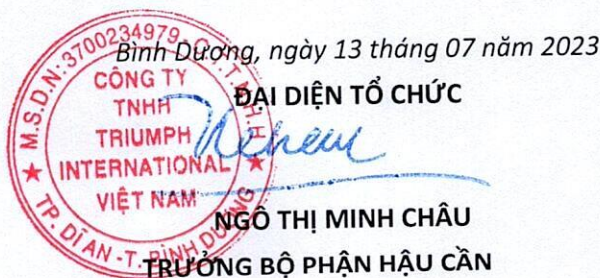 Bình Dương, ngày 13 tháng 07 năm 2023
ĐẠI DIỆN TỔ CHỨC
M.S.D.N: 3700234979 - C.T.T.N.H.H
CÔNG TY
TNHH
TRIUMPH
INTERNATIONAL
VIỆT NAM
TP. DĨ AN - T. BÌNH DƯƠNG
NGÔ THỊ MINH CHÂU
TRƯỞNG BỘ PHẬN HẬU CẦN